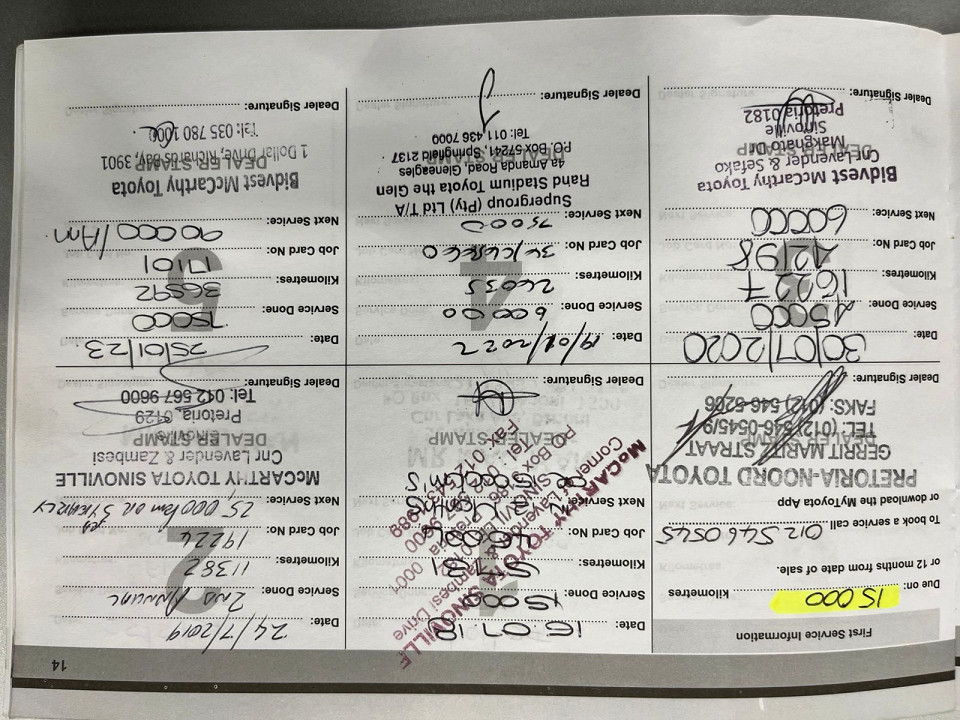 14
First Service Information
Due on: 15 000 kilometres
or 12 months from date of sale.
To book a service call 012 546 0545
or download the MyToyota App
PRETORIA-NOORD TOYOTA
GERRIT MARITZ STRAAT
DEALER STAMP
TEL: (012) 546-0545/9
FAKS: (012) 546-5206
Dealer Signature:
Date: 16.07.18
Service Done: 15000
Kilometres: 5731
Job Card No:
Next Service:
McCARTHY TOYOTA SINOVILLE
DEALER STAMP
Dealer Signature:
2
Date: 24/7/2019
Service Done: 2nd Annual
Kilometres: 11382
Job Card No: 19224
Next Service: 25,000km or 3rd yearly
McCARTHY TOYOTA SINOVILLE
Cnr Lavender & Zambesi
DEALER STAMP
Sinoville
Pretoria, 0129
Tel: 012 567 9600
Dealer Signature:
3
Date: 30/07/2020
Service Done: 45000
Kilometres: 16227
Job Card No: 42198
Next Service: 60000
Bidvest McCarthy Toyota
Cnr Lavender & Sefako
DEALER STAMP
Makghato Dr
Sinoville
Pretoria 0182
Dealer Signature:
4
Date: 19/01/2022
Service Done: 60000
Kilometres: 26035
Job Card No:
Next Service: 75000
Supergroup (Pty) Ltd T/A
Rand Stadium Toyota the Glen
4a Amanda Road, Gleneagles
DEALER STAMP
PO. Box 57241, Springfield 2137
Tel: 011 436 7000
Dealer Signature:
5
Date: 25/01/23
Service Done: 75000
Kilometres: 36592
Job Card No: 17101
Next Service: 90 000/Ann
Bidvest McCarthy Toyota
DEALER STAMP
1 Dollar Drive, Richards Bay, 3901
Tel: 035 780 1000
Dealer Signature: